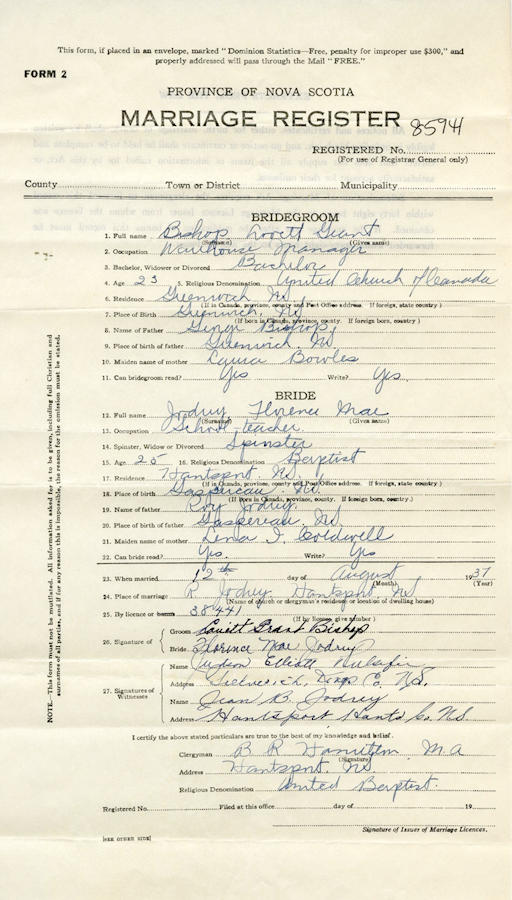 This form, if placed in an envelope, marked "Dominion Statistics—Free, penalty for improper use $300," and
properly addressed will pass through the Mail "FREE."
FORM 2
PROVINCE OF NOVA SCOTIA
MARRIAGE REGISTER 8594
REGISTERED No.
(For use of Registrar General only)
County Town or District Municipality
BRIDEGROOM
1. Full name Bishop Lovitt Grant
(Surname) (Given name)
2. Occupation Warehouse Manager
3. Bachelor, Widower or Divorced Bachelor
4. Age 23 5. Religious Denomination United Church of Canada
6. Residence Greenwich NS
(If is in Canada, province, county and Post Office address. If foreign, state country)
7. Place of Birth Greenwich, NS
(If born in Canada, province, county. If foreign born, country)
8. Name of Father Bishop
9. Place of birth of father Greenwich NS
10. Maiden name of mother Laura Bowles
11. Can bridegroom read? Yes Write? Yes.
BRIDE
12. Full name Jodrey Florence Mae
(Surname) (Given name)
13. Occupation School teacher
14. Spinster, Widow or Divorced Spinster
15. Age 25 16. Religious Denomination Baptist
17. Residence Hantsport. NS.
(If is in Canada, province, county and Post Office address. If foreign, state country)
18. Place of birth Gaspereau NS.
(If Born in Canada, province, county. If foreign born, country.)
19. Name of father Roy Jodrey.
20. Place of birth of father Gaspereau. NS.
21. Maiden name of mother Lena I. Coldwell
22. Can bride read? Yes. Write? Yes
23. When married 12th day of August 1937
(Month) (Year)
24. Place of marriage R Jodrey. Hantsport. NS
(Name of church or clergyman's residence or location of dwelling house)
25. By licence or banns 38441
(If by licence, give number)
26. Signature of
Groom Lovitt Grant Bishop
Bride Florence Mae Jodrey
27. Signatures of Witnesses
Name Elliott
Address Kings Co. N.S.
Name Jean B. Jodrey
Address Hantsport Hants Co. N.S.
I certify the above stated particulars are true to the best of my knowledge and belief.
Clergyman B R Hamilton M A
(Signature)
Address Hantsport. NS
Religious Denomination United Baptist.
Registered No. Filed at this office day of 19
Signature of Issuer of Marriage Licences.
[SEE OTHER SIDE]
NOTE.—This form must not be mutilated. All information asked for is to be given, including full Christian and
surnames of all parties, and if for any reason this is impossible, the reason for the omission must be stated.